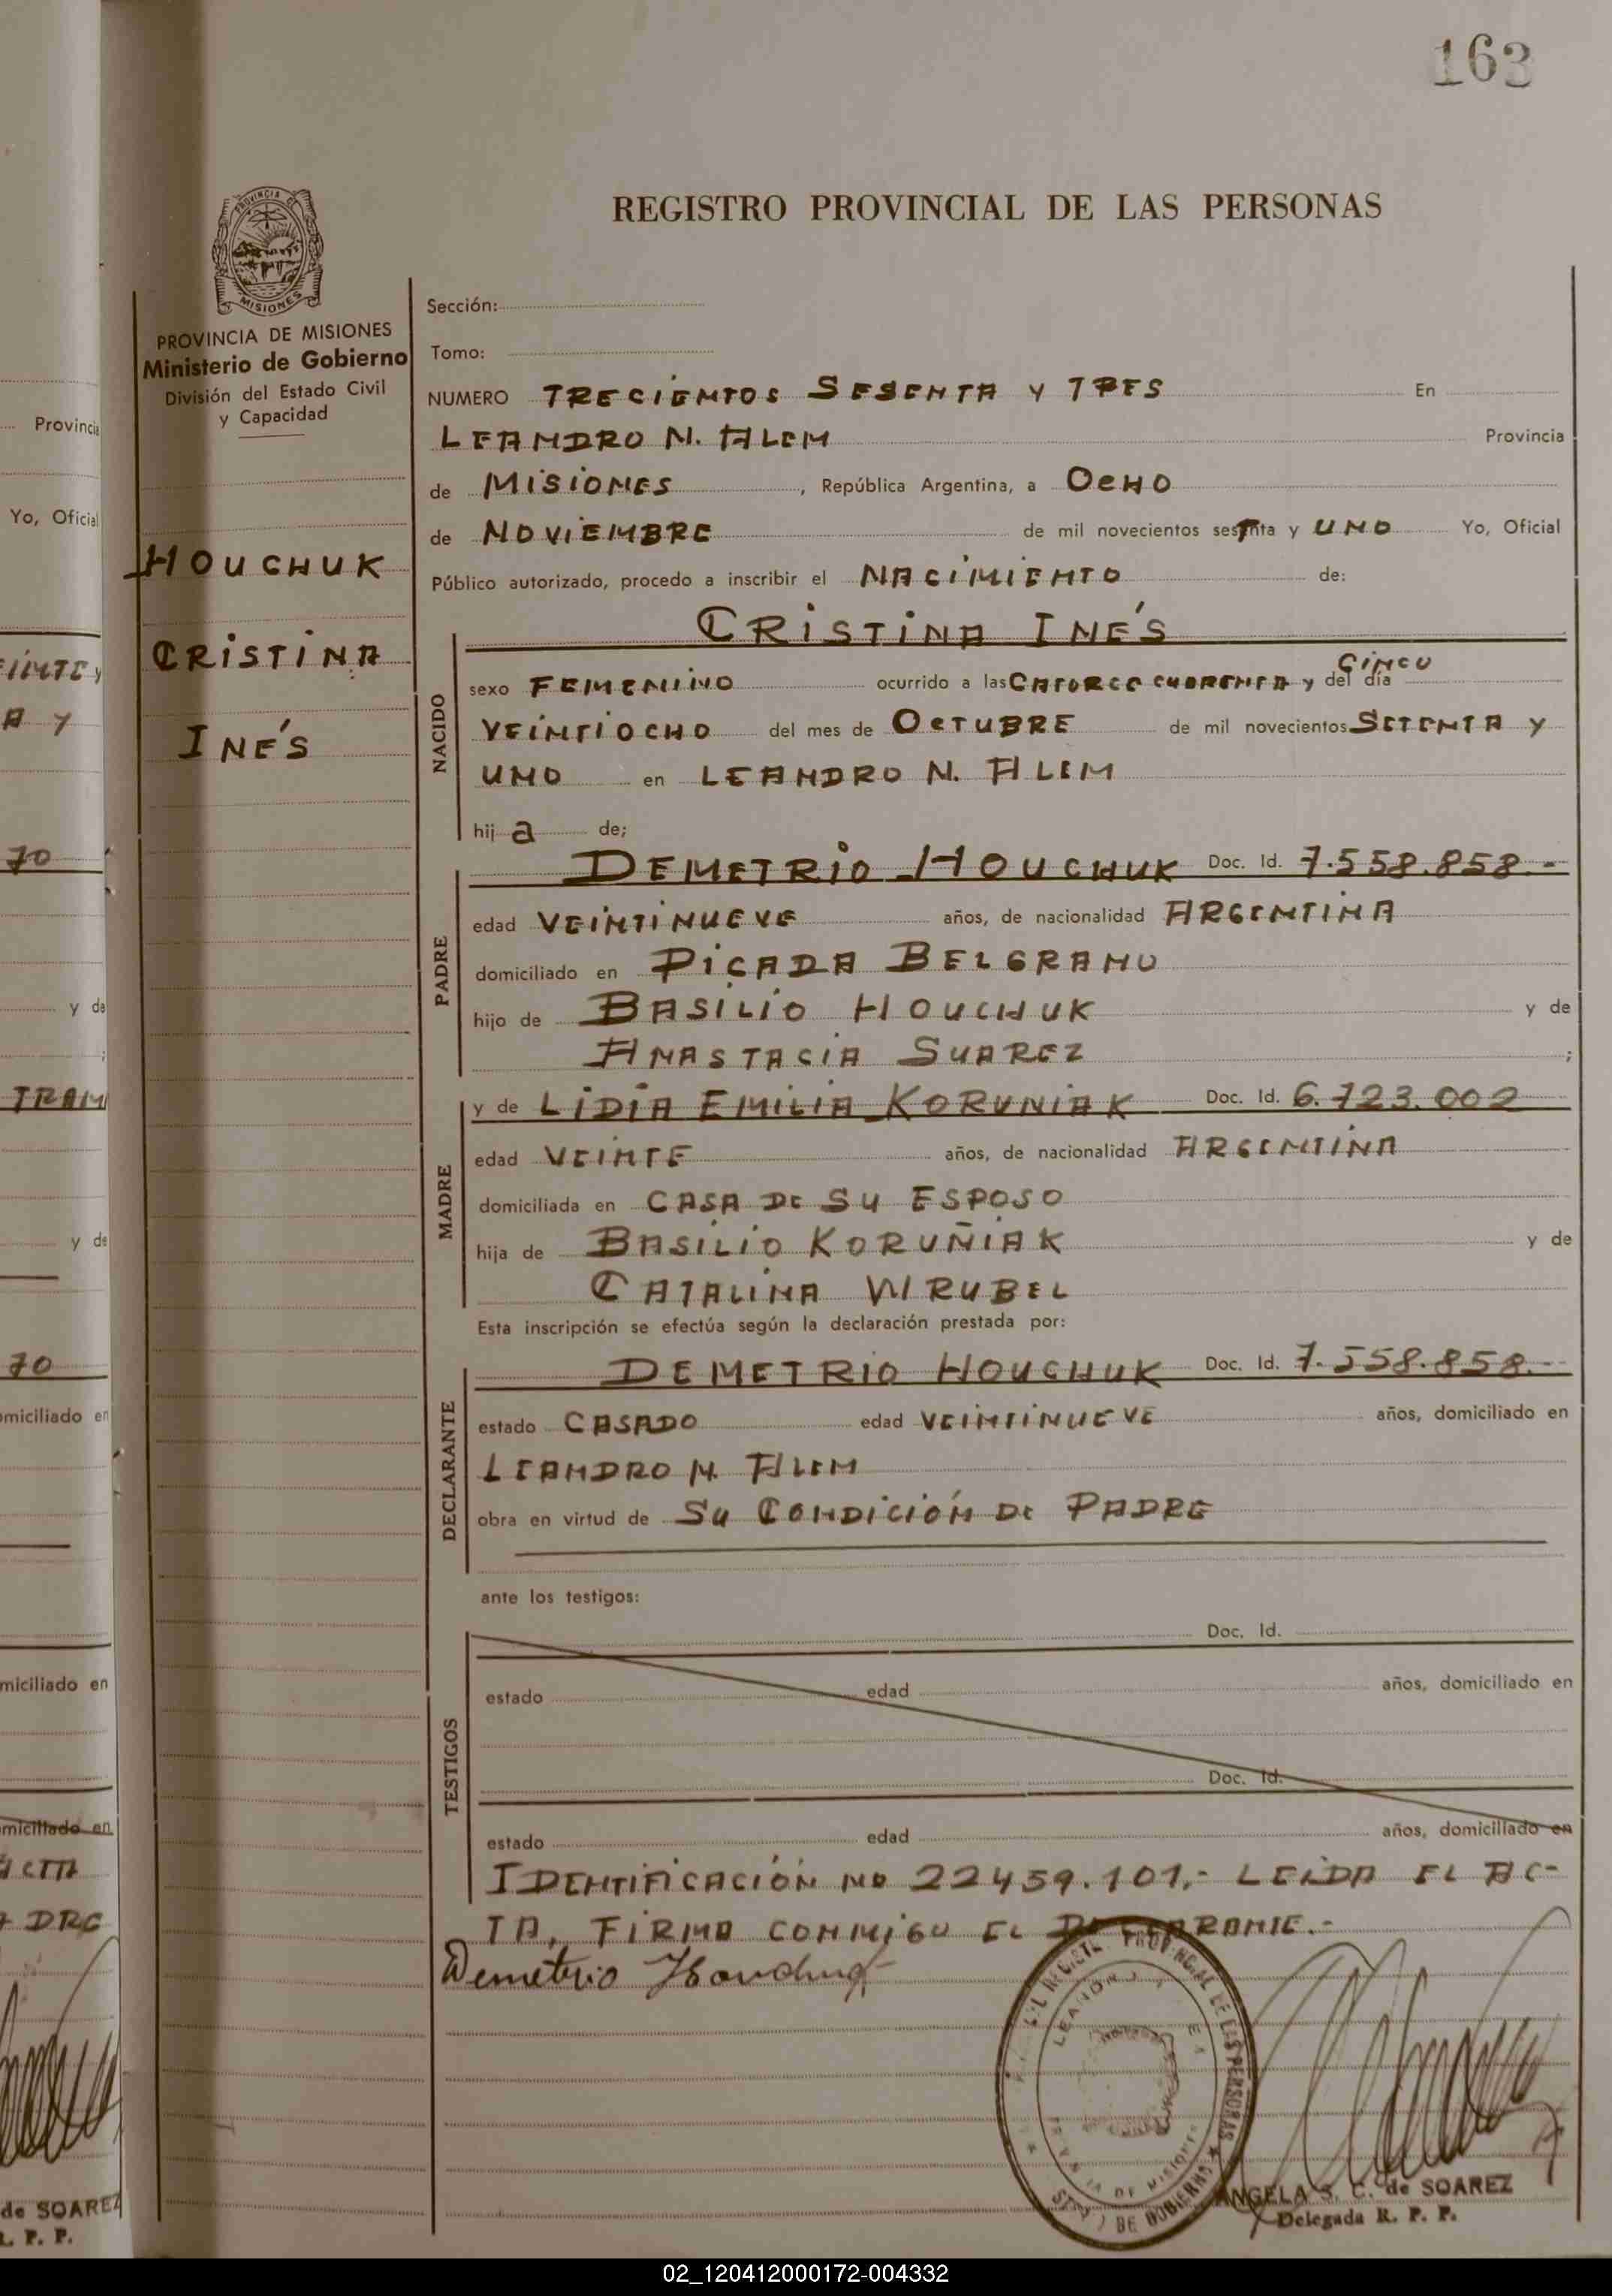 163
REGISTRO PROVINCIAL DE LAS PERSONAS
PROVINCIA DE MISIONES
Ministerio de Gobierno
División del Estado Civil
y Capacidad
HOUCHUK
CRISTINA
INÉS
Sección:
Tomo:
NUMERO TRECIENTOS SESENTA Y TRES En
LEANDRO N. ALEM Provincia
de MISIONES, República Argentina, a OCHO
de NOVIEMBRE de mil novecientos sestnta y UNO Yo, Oficial
Público autorizado, procedo a inscribir el NACIMIENTO de:
CRISTINA INÉS
NACIDO
sexo FEMENINO ocurrido a las CATORCE CUARENTA y CINCO del día
VEINTIOCHO del mes de OCTUBRE de mil novecientos SETENTA Y
UNO en LEANDRO N. ALEM
hija de;
PADRE
DEMETRIO HOUCHUK Doc. Id. 7.558.858.-
edad VEINTINUEVE años, de nacionalidad ARGENTINA
domiciliado en PICADA BELGRANO
hijo de BASILIO HOUCHUK y de
ANASTACIA SUAREZ ;
MADRE
y de LIDIA EMILIA KORUNIAK Doc. Id. 6.723.002
edad VEINTE años, de nacionalidad ARGENTINA
domiciliada en CASA DE SU ESPOSO
hija de BASILIO KORUÑIAK y de
CATALINA WRUBEL
Esta inscripción se efectúa según la declaración prestada por:
DECLARANTE
DEMETRIO HOUCHUK Doc. Id. 7.558.858.-
estado CASADO edad VEINTINUEVE años, domiciliado en
LEANDRO N. ALEM
obra en virtud de SU CONDICIÓN DE PADRE
ante los testigos:
TESTIGOS
Doc. Id.
estado edad años, domiciliado en
Doc. Id.
estado edad años, domiciliado en
IDENTIFICACIÓN No 22459.101.- LEIDA EL AC-
TA, FIRMA CONMIGO EL DECLARANTE.-
Demetrio Houchuk
ANGELA S. C. de SOAREZ
Delegada R. P. P.
02_120412000172-004332